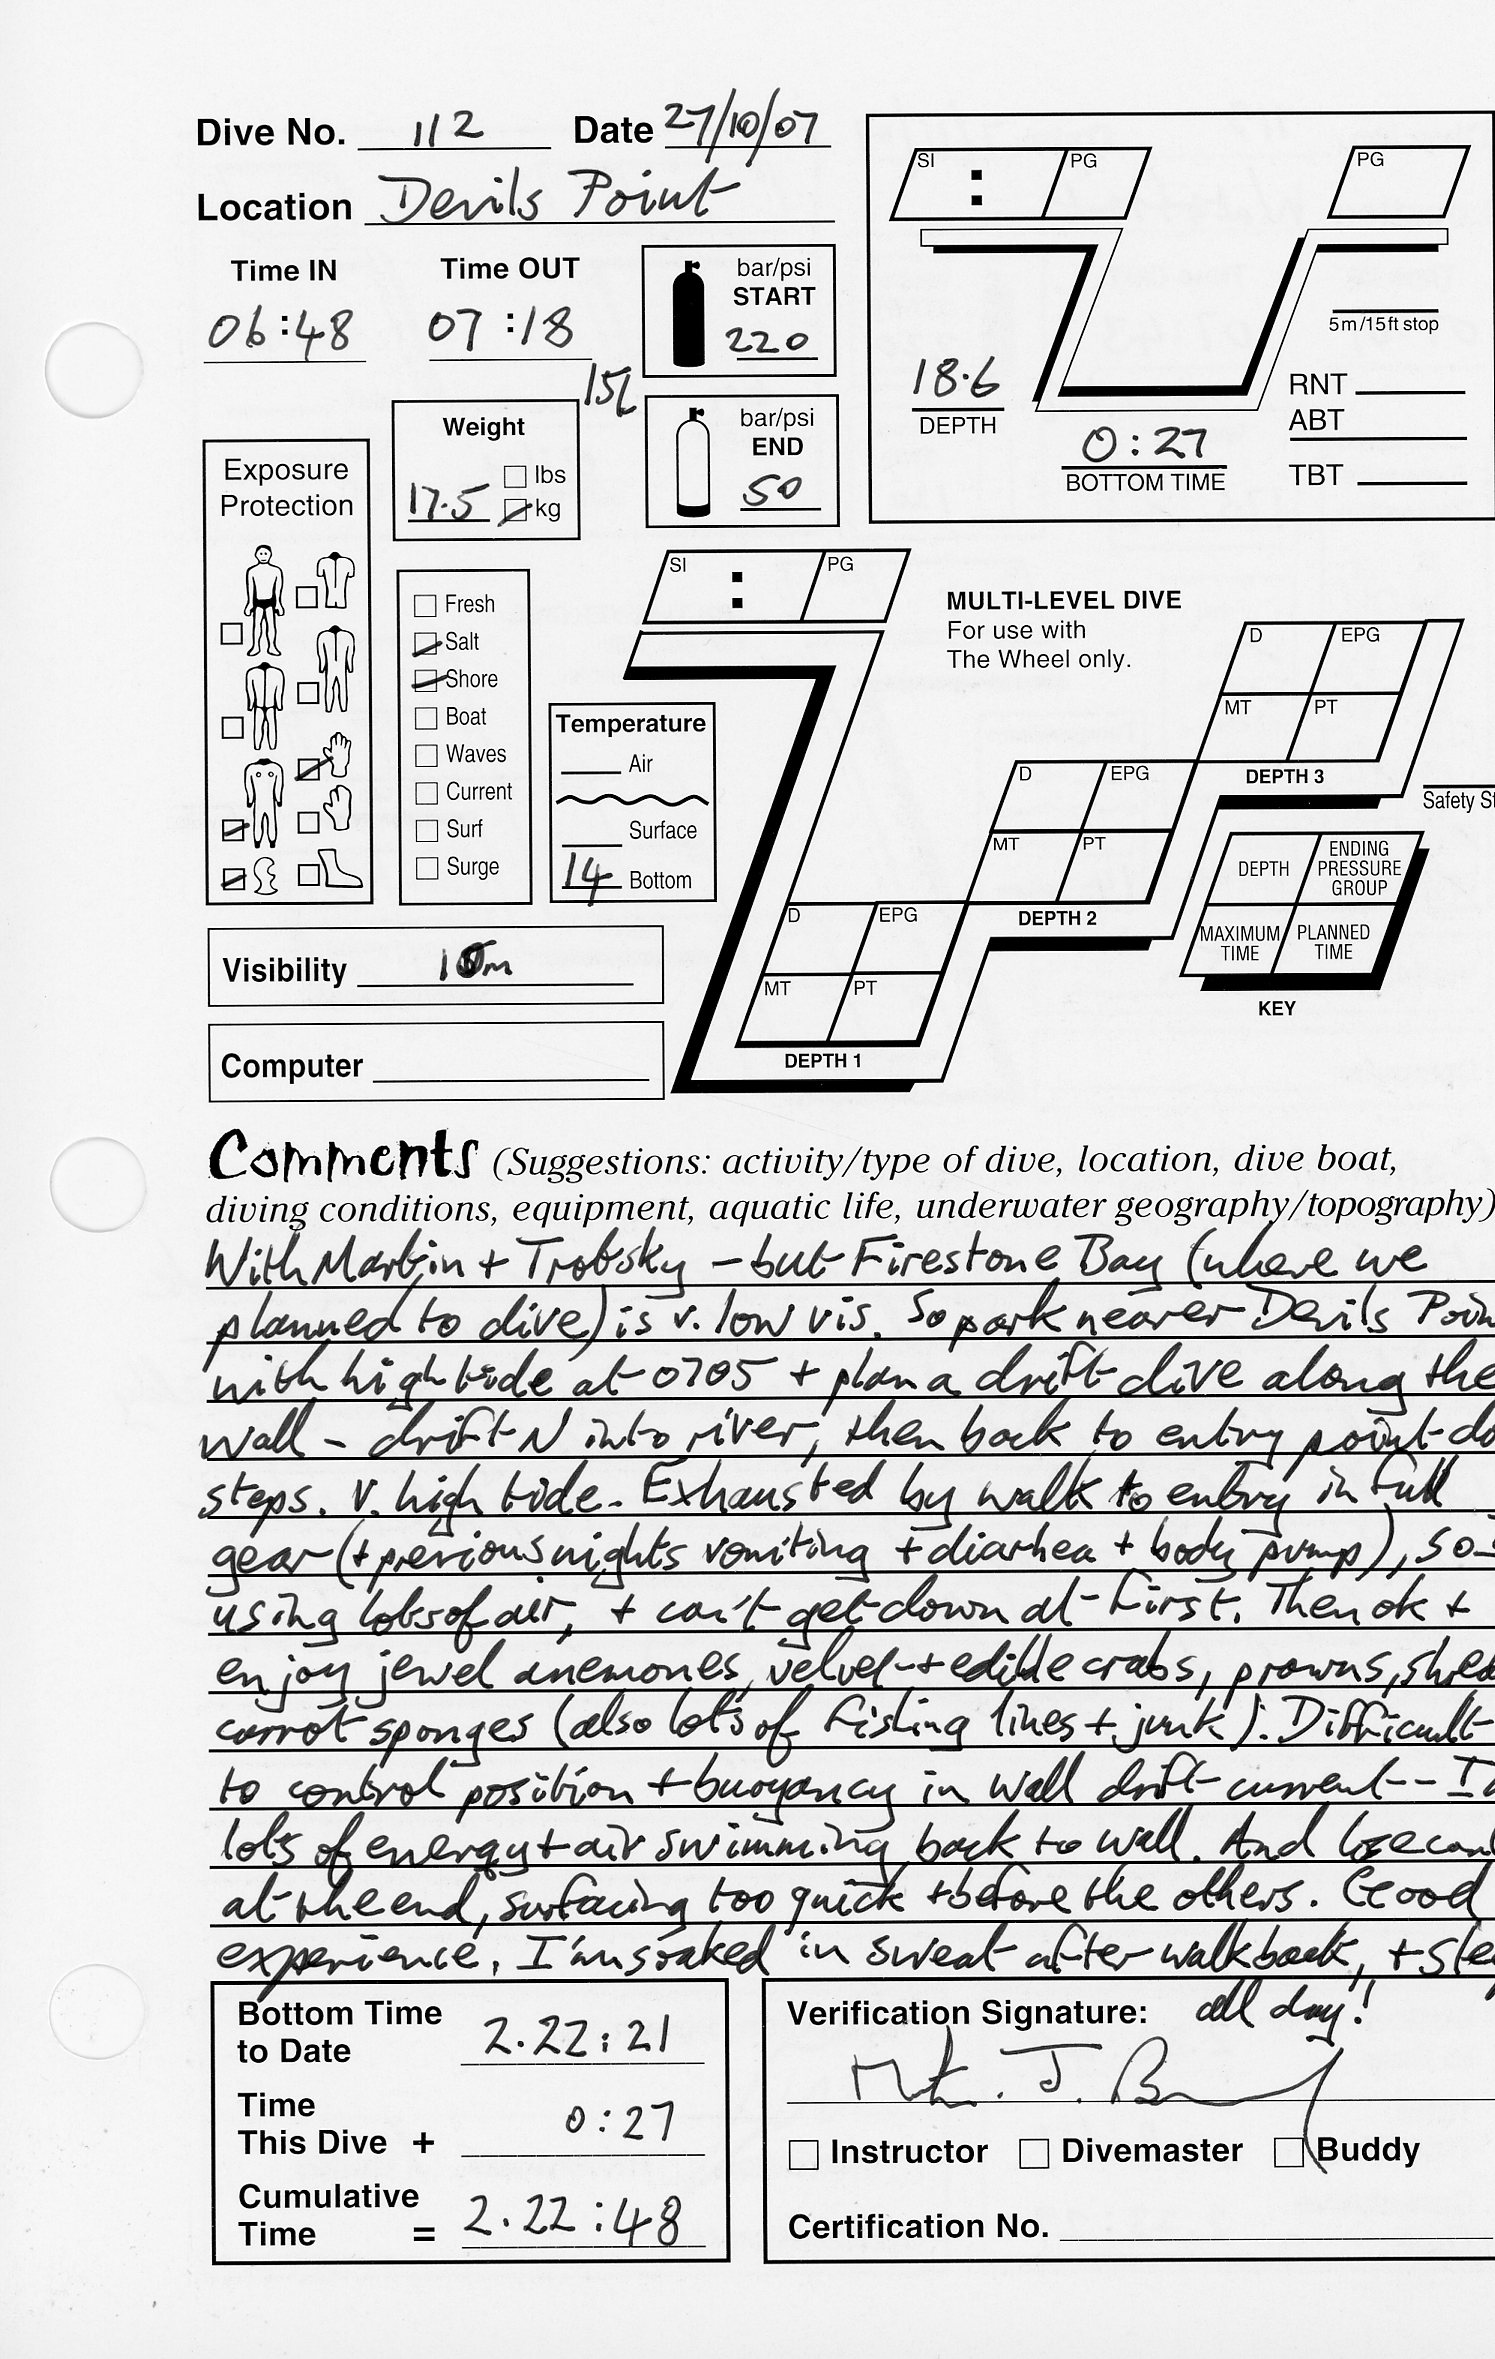 Dive No. 112 Date 27/10/07
Location Devils Point
Time IN Time OUT
06:48 07:18
bar/psi
START
220
15L
bar/psi
END
50
Weight
17.5
lbs
kg
Exposure
Protection
Fresh
Salt
Shore
Boat
Waves
Current
Surf
Surge
Temperature
Air
Surface
14 Bottom
Visibility
Computer
SI : PG
PG
5m/15ft stop
18.6
DEPTH
0:27
BOTTOM TIME
RNT
ABT
TBT
SI : PG
MULTI-LEVEL DIVE
For use with
The Wheel only.
D EPG
MT PT
DEPTH 3
D EPG
MT PT
DEPTH 2
D EPG
MT PT
DEPTH 1
Safety St
DEPTH
ENDING
PRESSURE
GROUP
MAXIMUM
TIME
PLANNED
TIME
KEY
Comments (Suggestions: activity/type of dive, location, dive boat,
diving conditions, equipment, aquatic life, underwater geography/topography)
With Martin + Trotsky - but Firestone Bay (where we
planned to dive) is v. low vis. So park nearer Devils Poin
with high tide at 0705 + plan a drift dive along the
wall - drift N into river, then back to entry point do
steps. V. high tide. Exhausted by walk to entry in full
gear (+ previous nights vomiting + diarhea + body pump), so
using lots of air, + can't get down at first. Then ok +
enjoy jewel anemones, velvet + edible crabs, prawns, shred
carrot sponges (also lots of fishing lines + junk). Difficult
to control position + buoyancy in wall drift current -- I
lots of energy + air swimming back to wall. And lose con
at the end, surfacing too quick + before the others. Good
experience. I'm soaked in sweat after walk back, + slee
all day!
Bottom Time
to Date 2.22:21
Time
This Dive + 0:27
Cumulative
Time = 2.22:48
Verification Signature:
Instructor Divemaster Buddy
Certification No.